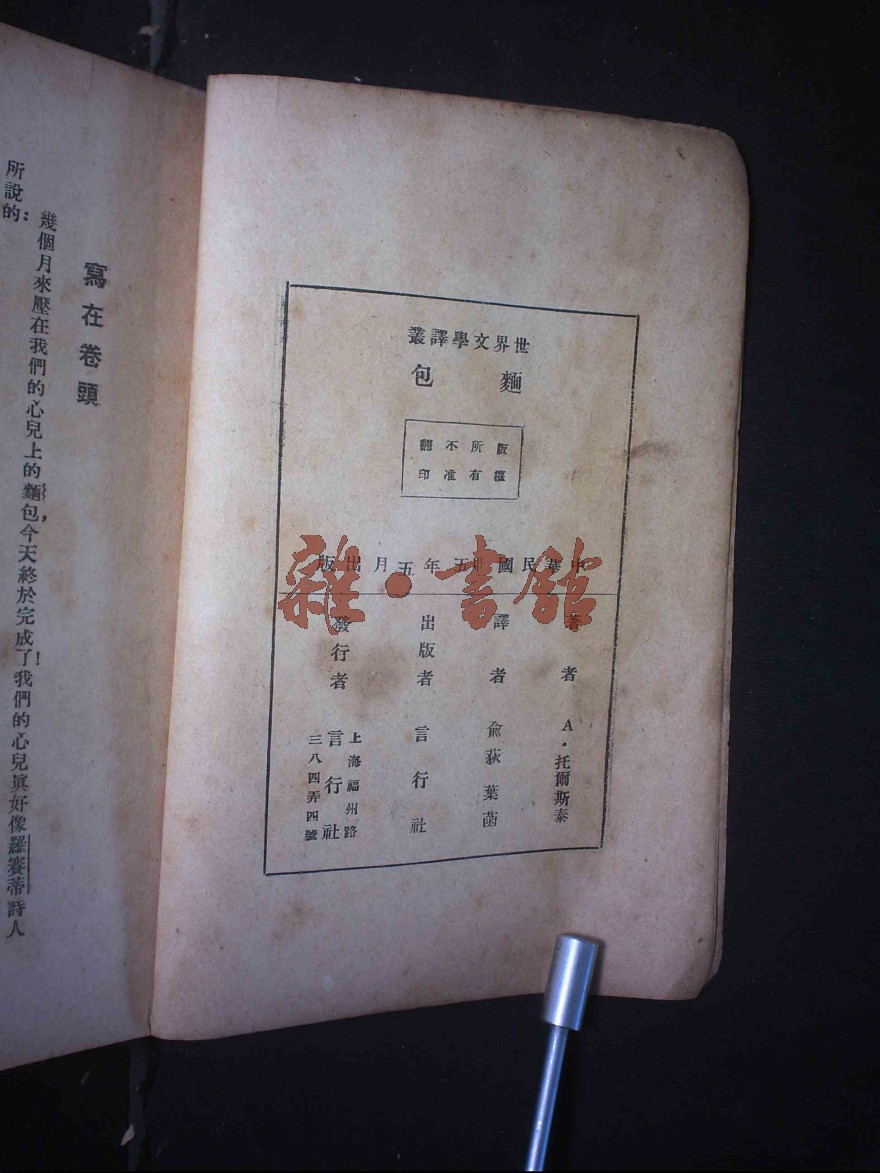 世界文學譯叢
麵包
版權所有
不准翻印
中華民國卅五年五月出版
著者 A·托爾斯泰
譯者 俞荻 葉菡
出版者 言行社
發行者 言行社
上海福州路
三八四弄四號
寫在卷頭
幾個月來壓在我們的心兒上的麵包，今天終於完成了！我們的心兒眞好像羅賽蒂詩人
所說的：
雜·書館